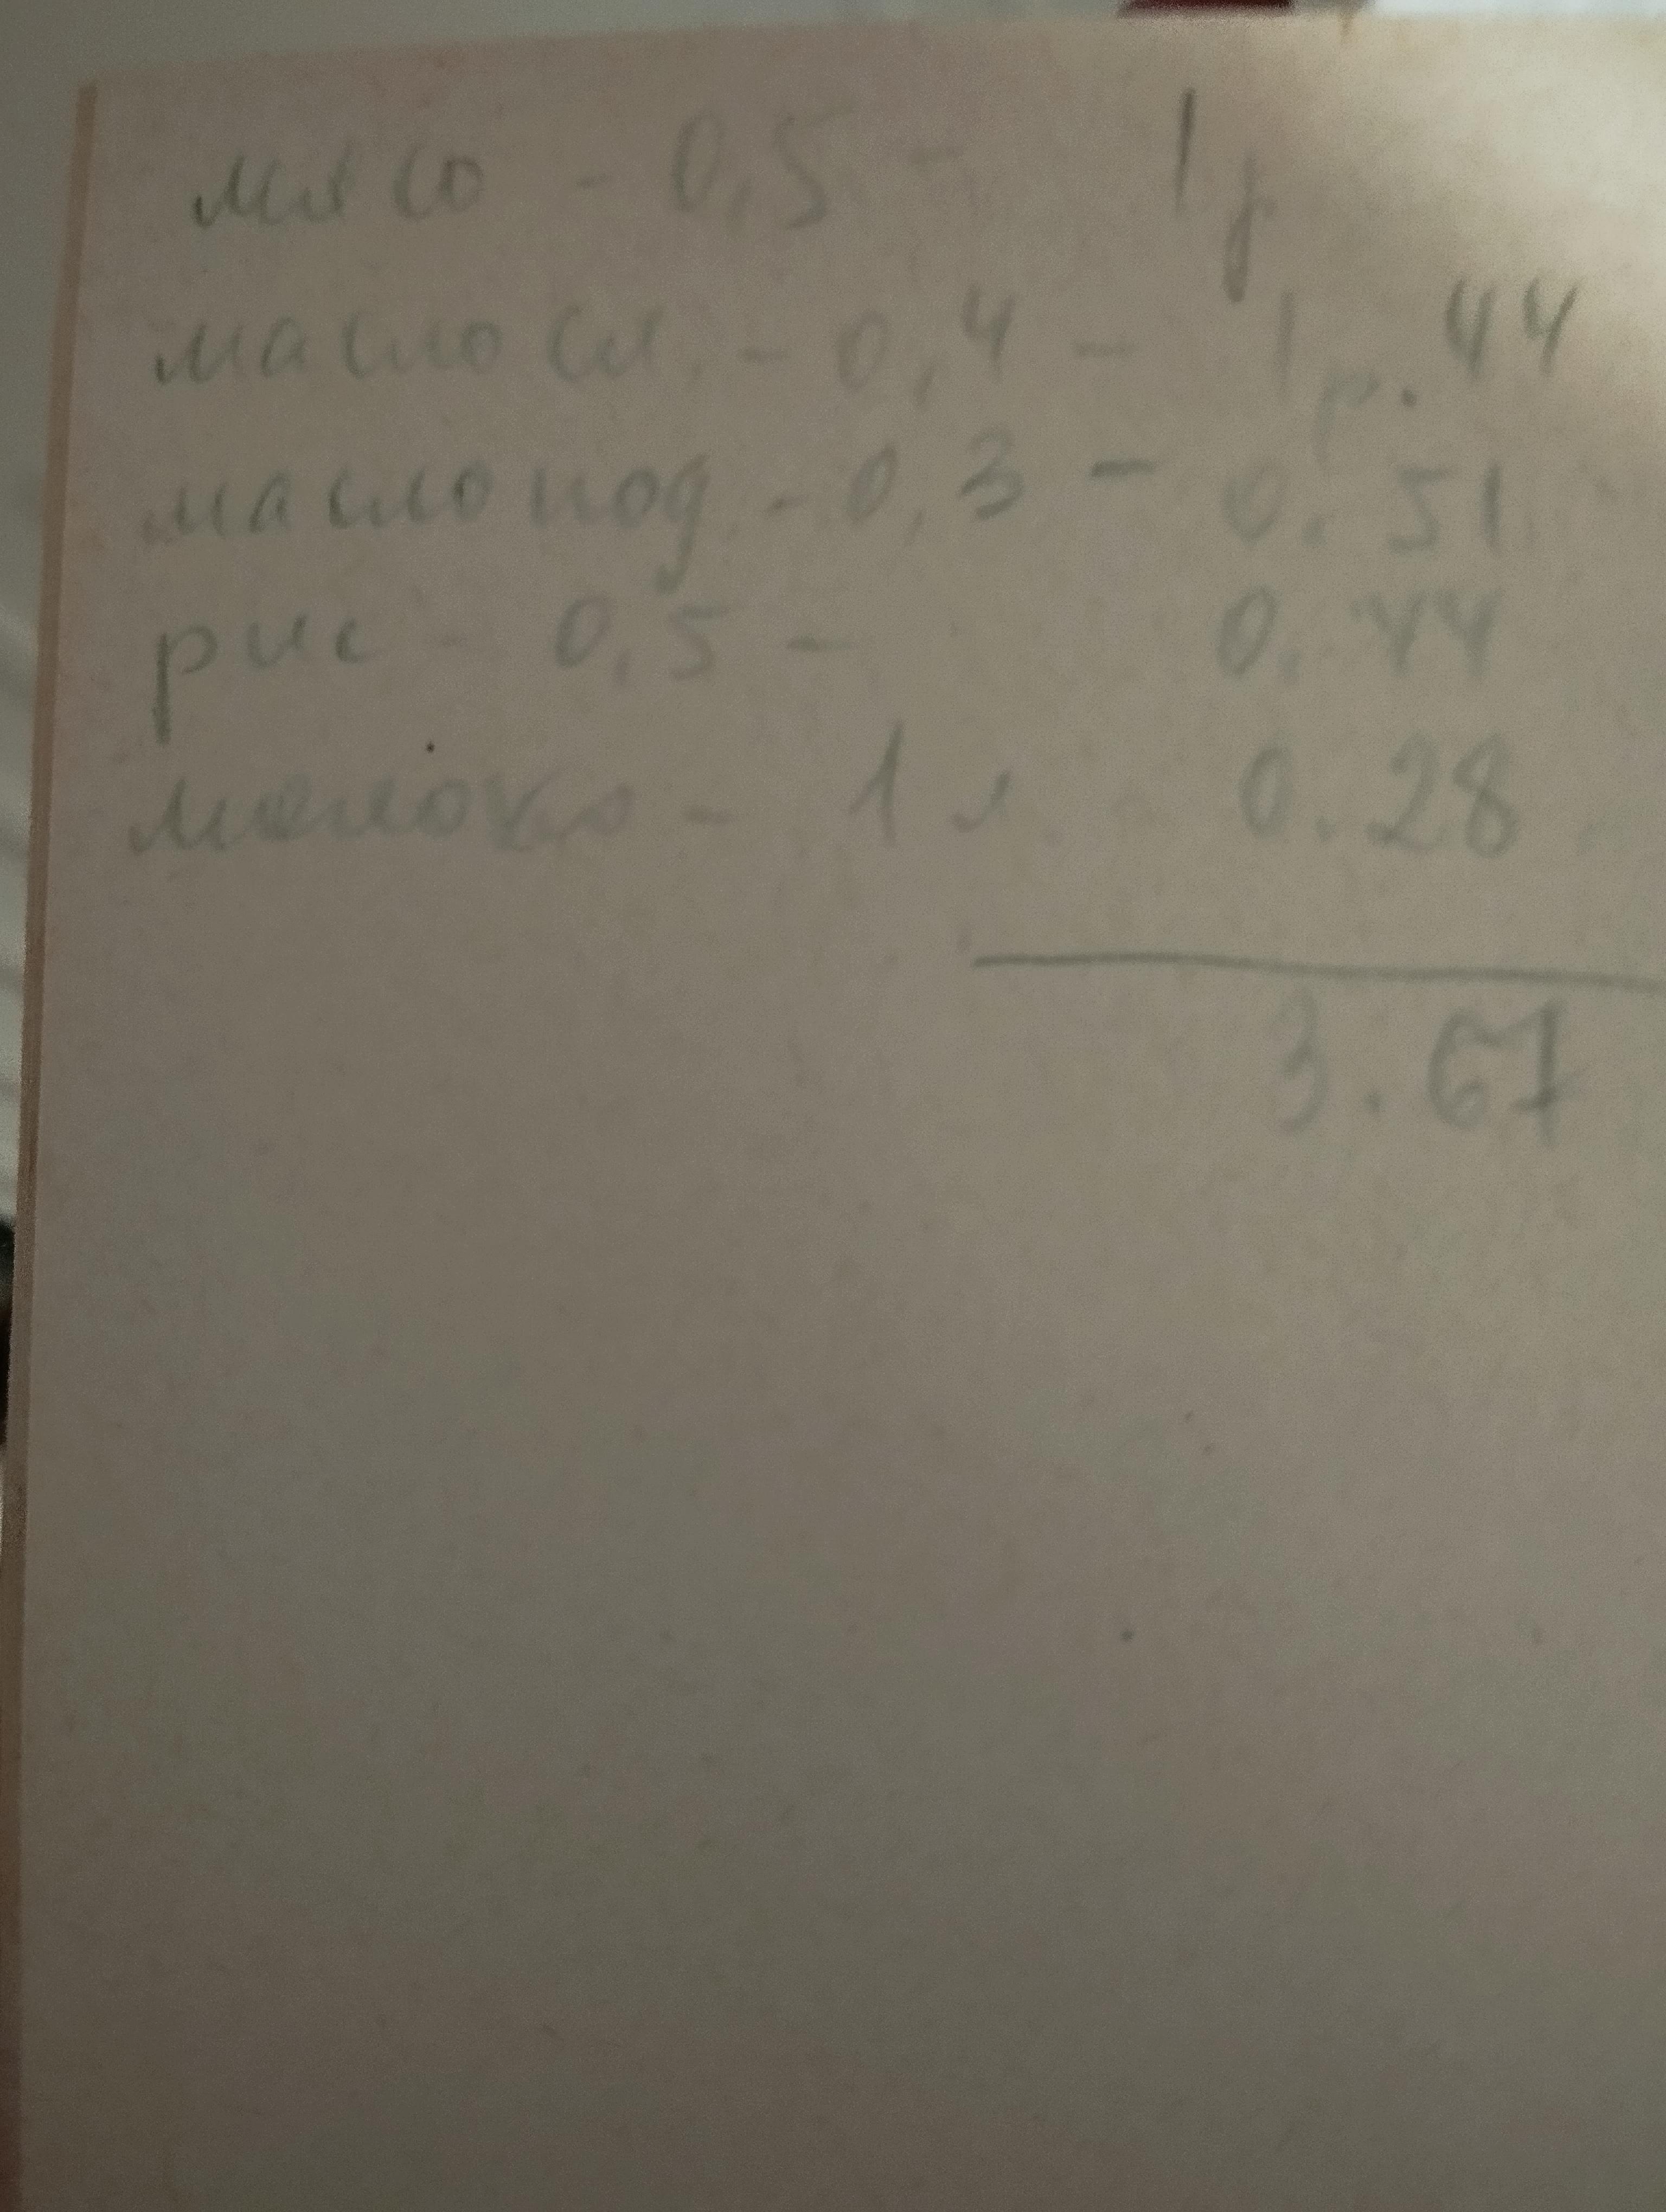 мясо - 0,5 - 1 р
масло сл. - 0,4 - 1 р. 44
масло под. - 0,3 - 0. 51
рис - 0,5 - 0. 44
молоко - 1 л 0. 28
3. 67